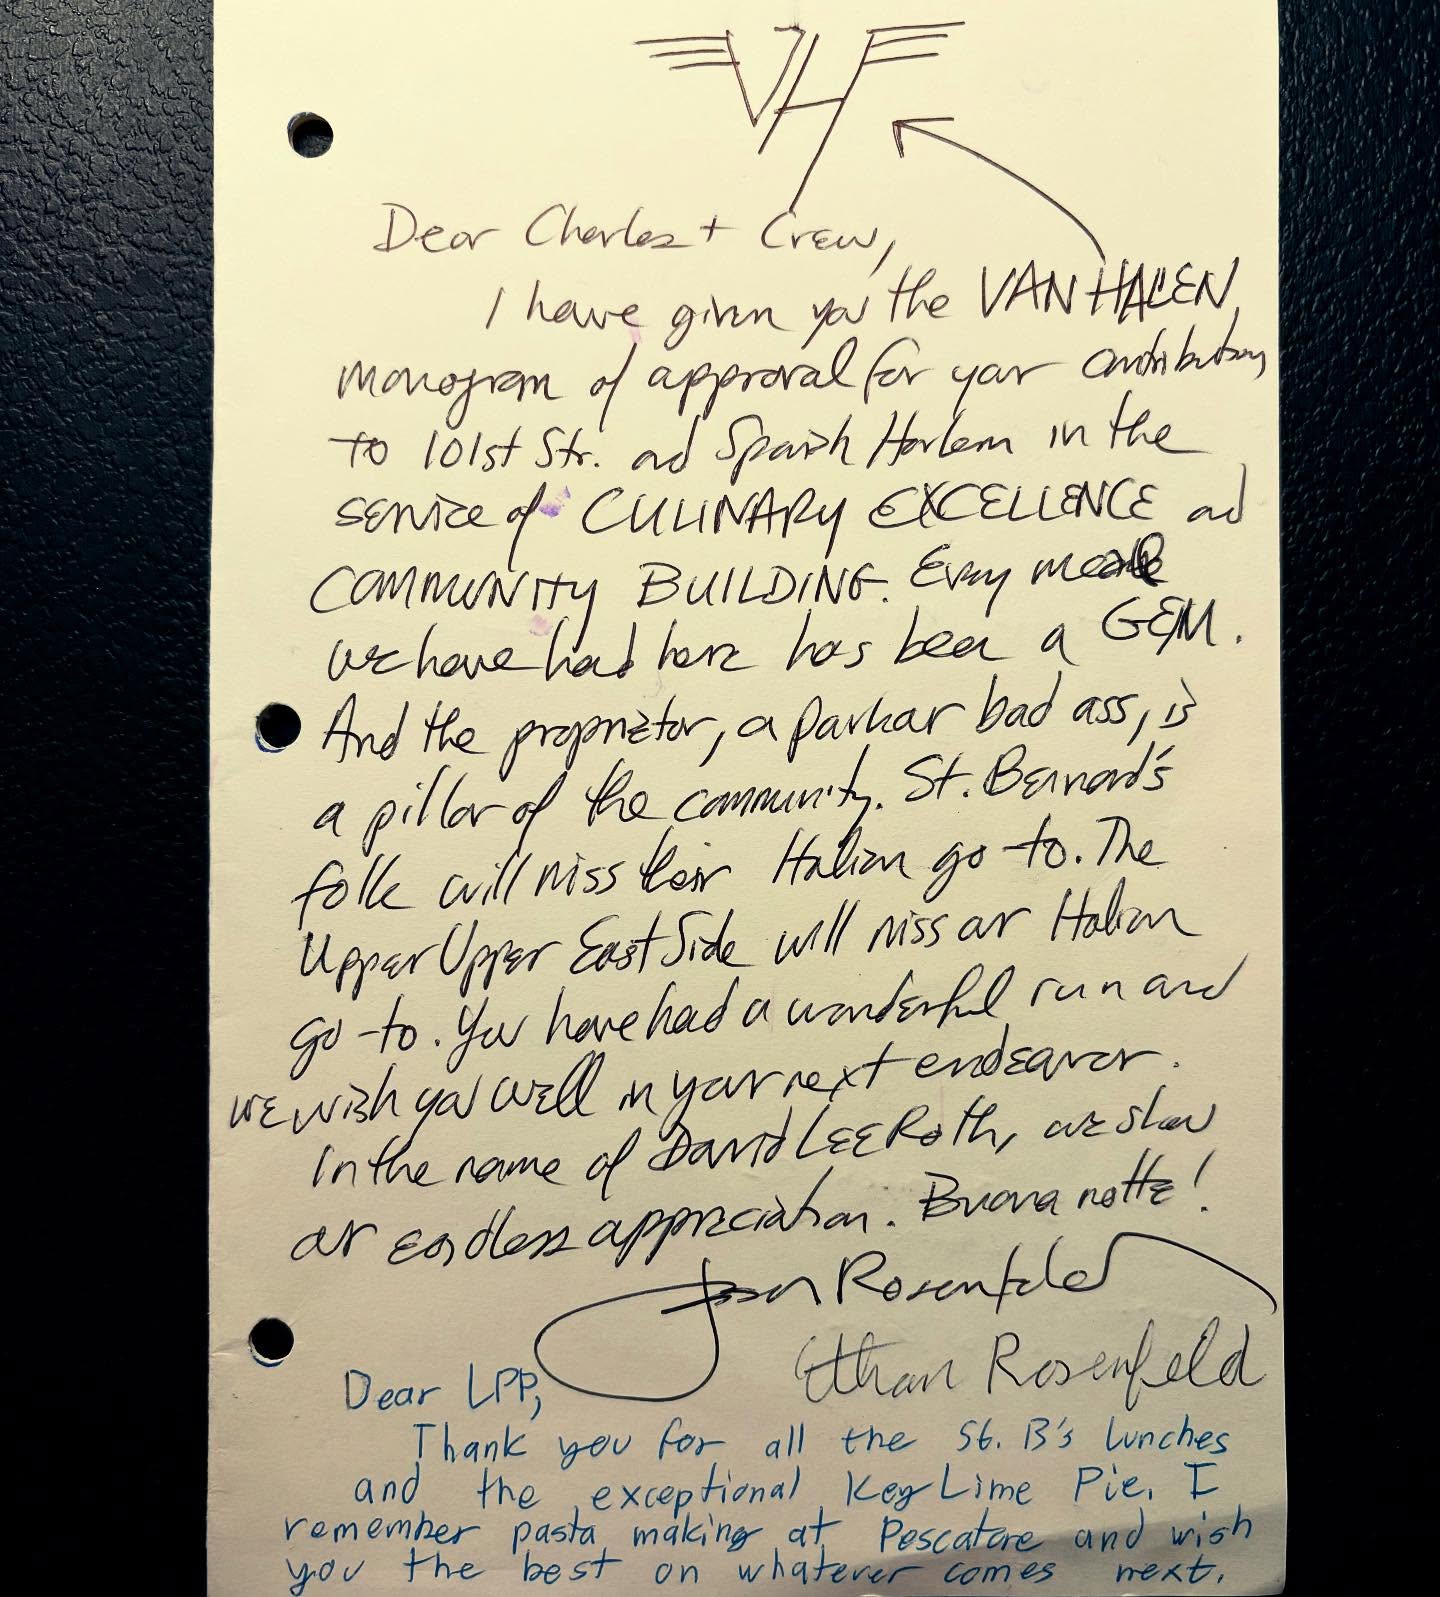 VH
Dear Charles + Crew,
I have given you the VAN HALEN
monogram of approval for your contributions
to 101st Str. and Spanish Harlem in the
service of CULINARY EXCELLENCE and
COMMUNITY BUILDING. Every meal
we have had here has been a GEM.
And the proprietor, a parkar bad ass, is
a pillar of the community. St. Bernard's
folk will miss their Italian go to. The
Upper Upper East Side will miss our Italian
go-to. You have had a wonderful run and
we wish you well in your next endeavor.
In the name of David Lee Roth, we show
our endless appreciation. Buona notte!
Rosenfeld
Ethan Rosenfeld
Dear LPP,
Thank you for all the St. B's lunches
and the exceptional Key Lime Pie. I
remember pasta making at Pescatore and wish
you the best on whatever comes next.